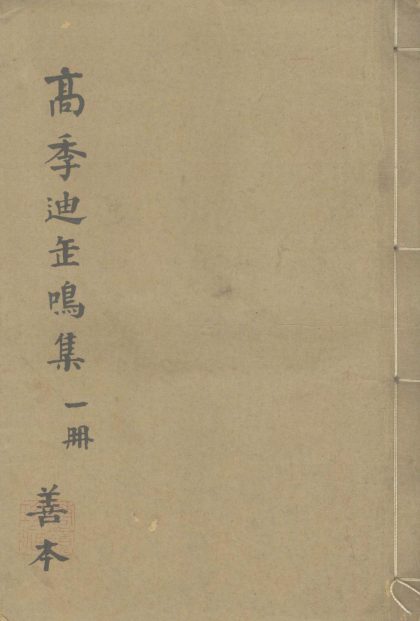 髙季迪缶鳴集 一冊 善本